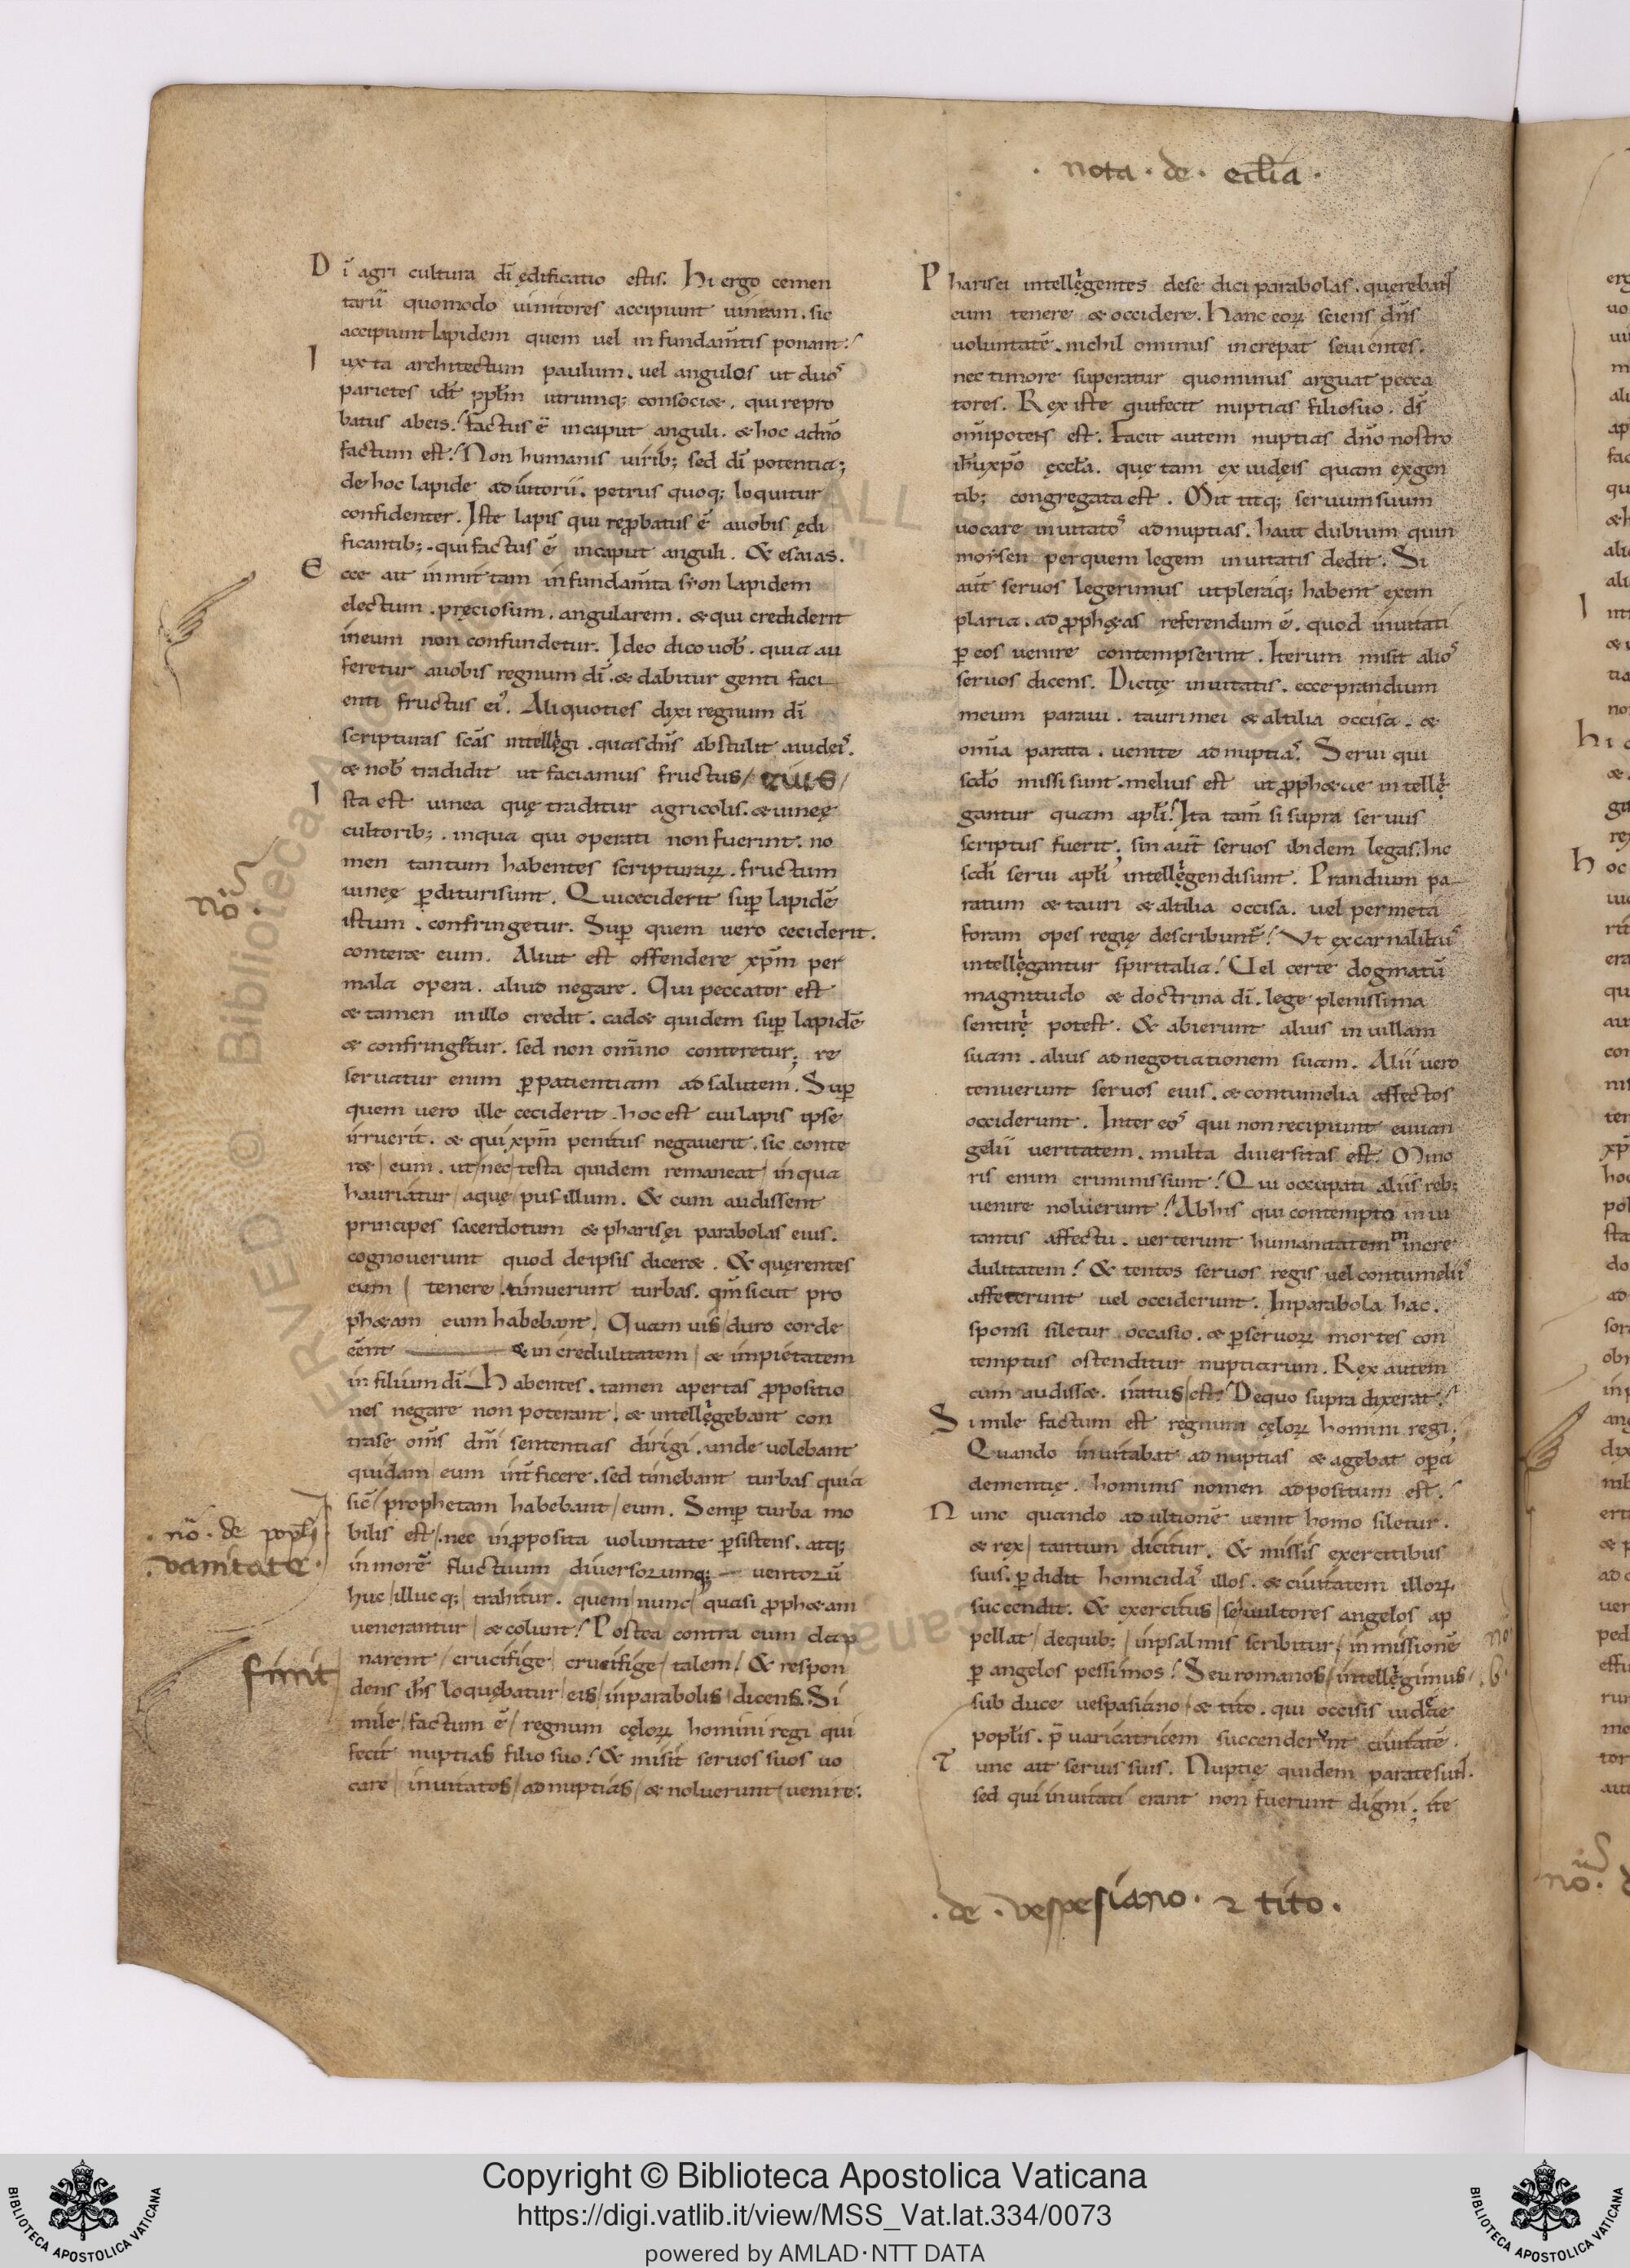 . nota . de . ecl̅ia .
Di̅ agri cultura di̅ ędificatio estis. Hi ergo cemen
tarii quomodo vinitores accipiunt vineam. sic
accipiunt lapidem quem vel in fundam̅tis ponant:
Iuxta architectum paulum. vel angulos ut duos
parietes
batus abeis. factus e̅ incaput anguli. & hoc adn̅o
factum est. Non humanis virib; sed di̅ potentia;
de hoc lapide adiutorii. petrus quoq; loquitur
confidenter. Iste lapis qui reꝓbatus e̅ avobis ędi
ficantib; . qui factus e̅ incaput anguli. & esaias.
Ecce ait inmittam in fundam̅ta syon lapidem
electum . pręciosum . angularem . & qui crediderit
ineum non confundetur. Ideo dico vob̅ . quia au
feretur avobis regnum di̅. & dabitur genti faci
enti fructus ei᾽. Aliquoties dixi regnum di̅
scripturas sc̅as intellęgi . quas dn̅s abstulit aiudeis.
& nob̅ tradidit ut faciamus fructus / eius /
Ista est vinea quę traditur agricolis. & vineę
cultorib; . inqua qui operati non fuerint. no
men tantum habentes scripturaꝝ . fructum
vineę ꝑdituri sunt. Qui ceciderit suꝑ lapide̅
istum . confringetur. Suꝑ quem vero ceciderit.
conter& eum. Aliut est offendere xp̅m per
mala opera . aliud negare. Qui peccator est
& tamen inillo credit . cad& quidem suꝑ lapide̅
& confringitur. sed non om̅ino conteretur; re
servatur enim ꝑpatientiam adsalutem. Suꝑ
quem vero ille ceciderit . hoc est cui lapis ipse
irruerit. & qui xp̅m penitus negaverit. sic conte
r& / eum. ut / nec / testa quidem remaneat / inqua
hauriatur / aquę / pusillum. & cum audissent
principes sacerdotum & pharisęi parabolas eius.
cognoverunt quod deipsis dicer& . & quęrentes
eum / tenere / timuerunt turbas. qm̅ sicut pro
ph&am eum habebant. Quam vis / duro corde
ee̅nt & incredulitatem / & impietatem
in filium di̅ Habentes. tamen apertas ꝓpositio
nes negare non poterant / & intellęgebant con
tra se om̅s dn̅i sententias dirigi . unde volebant
quidam / eum int̅ficere . sed timebant turbas quia
sic̅ / prophetam habebant / eum. Semꝑ turba mo
bilis est / . nec inꝓposita voluntate ꝑsistens. atq;
inmore̅ fluctuum diversorumq; ventoru̅
huc / illucq; / trahitur. quem / nunc / quasi ꝓph&am
venerantur / & colunt. Postea contra eum clam
narent / crucifige / crucifige / talem! & respon
dens ih̅s loquębatur / eis / inparabolis / dicens. Si
mile / factum e̅ / regnum cęloꝝ homini regi qui
fecit nuptias filio suo. & misit servos suos vo
care / invitatos / adnuptias / & noluerunt / venire:
no̅ .
. no̅ . de popl̅i
. vanitate .
finit
Pharisei intellęgentes dese dici parabolas . quęrebant
eum tenere & occidere. Hanc eoꝝ sciens dn̅s
voluntate̅ . nichil ominus increpat sevientes.
nec timore superatur quominus arguat pecca
tores. Rex iste qui fecit nuptias filio suo . ds̅
om̅ipotens est. Facit autem nuptias dn̅o nostro
ih̅u xp̅o ęccl̅a. quę tam ex iudęis quam exgen
tib; congregata est. Mittitq; servum suum
vocare invitatos adnuptias. haut dubium quin
moysen perquem legem invitatis dedit. Si
aut̅ servos legerimus ut pleraq; habent exem
plaria . ad ꝓph&as referendum e̅ . quod invitati
ꝑ eos venire contempserint. Iterum misit alios
servos dicens. Dicite invitatis . ecce prandium
meum paravi . tauri mei & altilia occisa . &
om̅ia parata . venite adnuptias. Servi qui
scd̅o missi sunt . melius est ut ꝓph&ae intellę
gantur quam apl̅i. Ita tam̅ si supra servus
scriptus fuerit. sin aut̅ servos ibidem legas. hic
scd̅i servi apl̅i intellęgendi sunt. Prandium pa
ratum & tauri & altilia occisa. vel permeta
foram opes regię describunt̅. Ut excarnalibus
intellęgantur spiritalia. Vel certe dogmatu̅
magnitudo & doctrina di̅ . lege plenissima
sentire potest. & abierunt alius in villam
suam . alius adnegotiationem suam. Alii vero
tenuerunt servos eius . & contumelia affectos
occiderunt. Inter eos qui non recipiunt euuan
gelii veritatem . multa diversitas est. Mino
ris enim criminis sunt. Qui occupati aliis reb;
venire noluerunt. Abhis qui contempto invi
tantis affectu . verterunt humanitatem incre
dulitatem. & tentos servos regis vel contumeliis
affecerunt vel occiderunt. Inparabola hac.
sponsi siletur occasio. & ꝑservoꝝ mortes con
temptus ostenditur nuptiarum. Rex autem
cum audiss&. iratus / est. Dequo supra dixerat.
Simile factum est regnum cęloꝝ homini regi;
Quando invitabat adnuptias & agebat oꝑa
clementię . hominis nomen adpositum est.
Nunc quando adultione̅ venit homo siletur.
& rex / tantum dicitur. & missis exercitibus
suis. ꝑdidit homicidas illos. & civitatem illoꝝ
succendit. & exercitus / seu ultores angelos ap
pellat / dequib; / inpsalmis scribitur / inmissione̅
ꝑ angelos pessimos. Seu romanos / intellęgimus /
sub duce vespasiano / & tito . qui occisis iudęae
popl̅is . p̅varicatricem succenderunt civitate̅.
Tunc ait servis suis. Nuptię quidem parate sunt.
sed qui invitati erant non fuerunt digni. ite
. de . vespesiano . ⁊ tito .
Copyright © Biblioteca Apostolica Vaticana
https://digi.vatlib.it/view/MSS_Vat.lat.334/0073
powered by AMLAD·NTT DATA
BIBLIOTECA APOSTOLICA VATICANA
BIBLIOTECA APOSTOLICA VATICANA